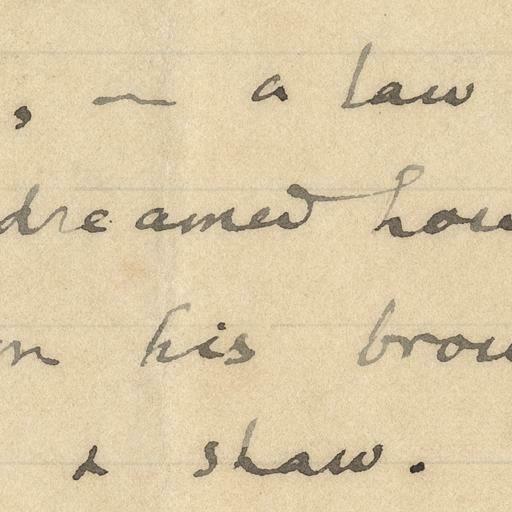 , — a law
dreamed how
n his brow
& shaw.